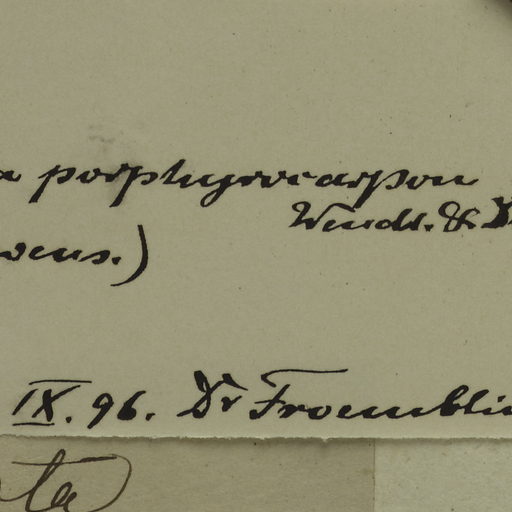 a porphyrocarpon
Wendl. & D
vens.)
IX. 96. Dr Froemblin
ta